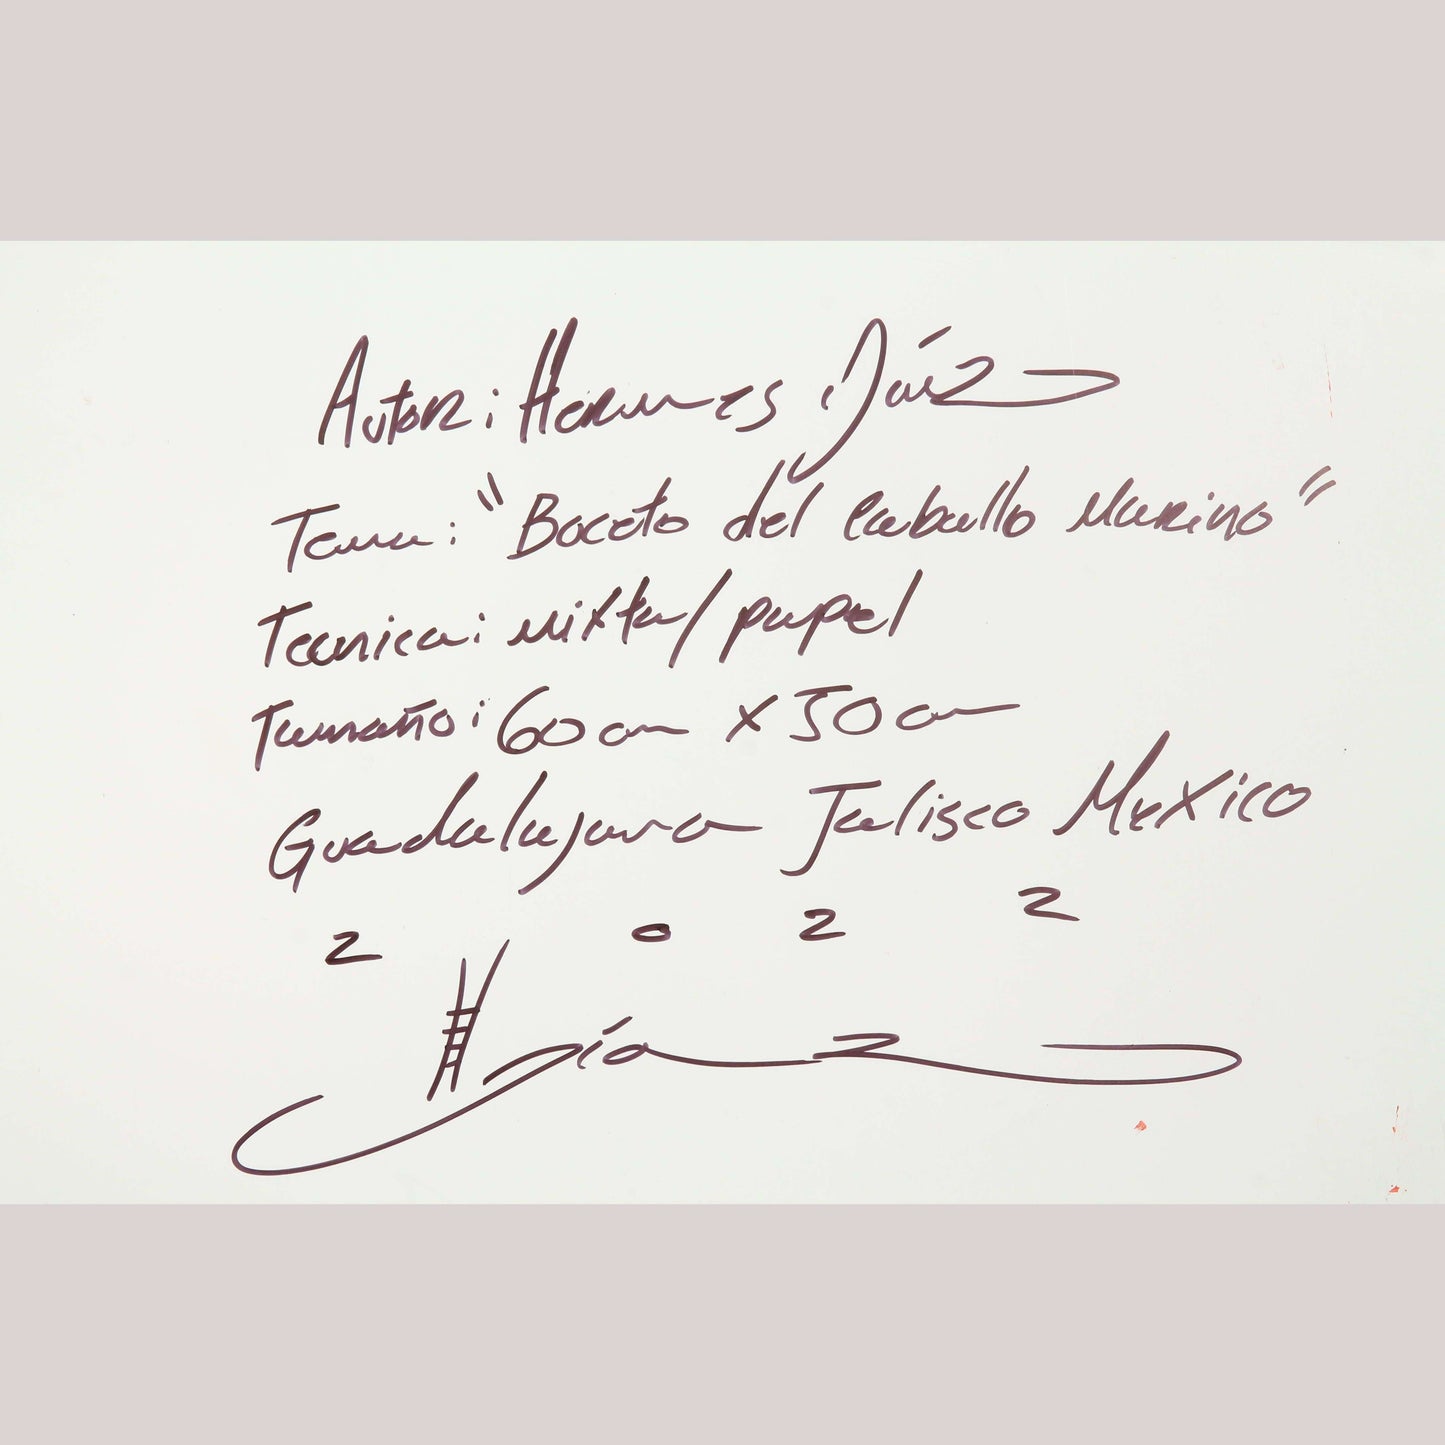 Autor: Hermes Díaz
Tema: "Boceto del Caballo Marino"
Tecnica: mixta/papel
Tamaño: 60 cm x 50 cm
Guadalajara Jalisco Mexico
2 0 2 2
H Díaz